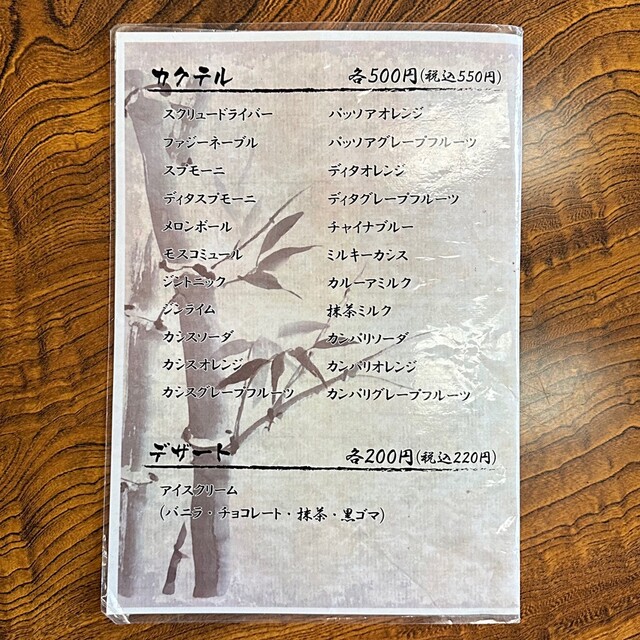 カクテル 各500円(税込550円)
スクリュードライバー
ファジーネーブル
スプモーニ
ディタスプモーニ
メロンボール
モスコミュール
ジントニック
ジンライム
カシスソーダ
カシスオレンジ
カシスグレープフルーツ
パッソアオレンジ
パッソアグレープフルーツ
ディタオレンジ
ディタグレープフルーツ
チャイナブルー
ミルキーカシス
カルーアミルク
抹茶ミルク
カンパリソーダ
カンパリオレンジ
カンパリグレープフルーツ
デザート 各200円(税込220円)
アイスクリーム
(バニラ・チョコレート・抹茶・黒ゴマ)